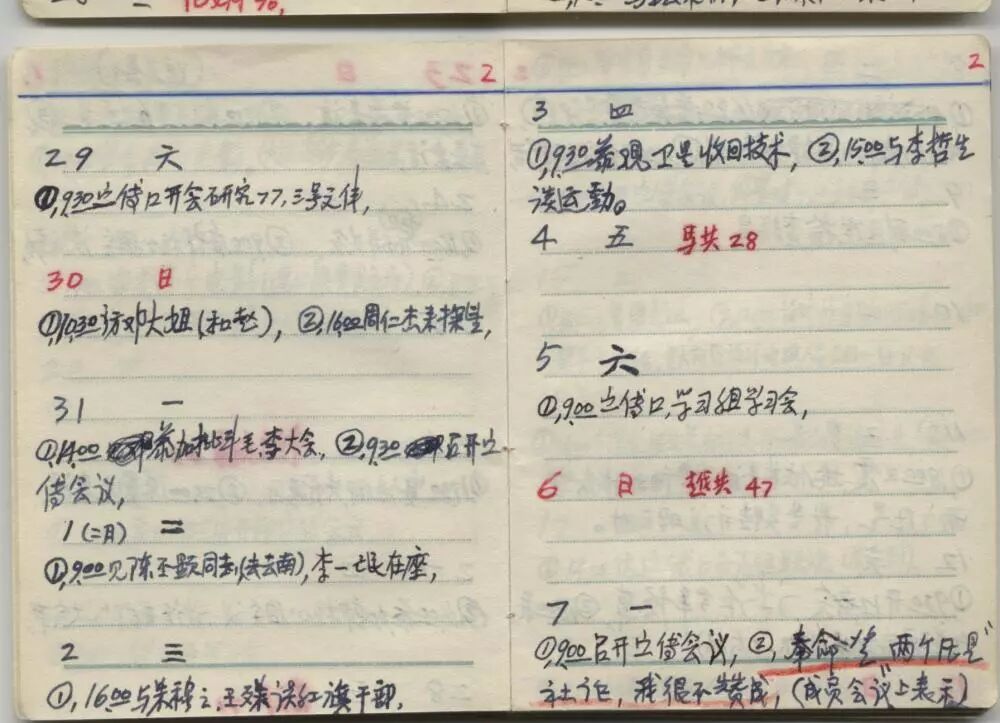 2
29 六
①,930宣传口开会研究77,三号文件,
30 日
①,1030访邓大姐(和赵),②,1600周仁杰来探望,
31 一
①,1400参加批斗毛,李大会,②,930召开宣
传会议,
1(二月) 二
①,900见陈丕显同志(去云南),李一氓在座,
2 三
①,1600与朱穆之,王殊谈红旗干部,
2
3 四
①,930参观卫星收回技术,②,1500与李哲生
谈运动。
4 五 马共28
5 六
①,900宣传口,学习组学习会,
6 日 越共47
7 一
①,900召开宣传会议,②,奉命发“两个凡是”
社论,我很不赞成,(“成员会议”上表示)